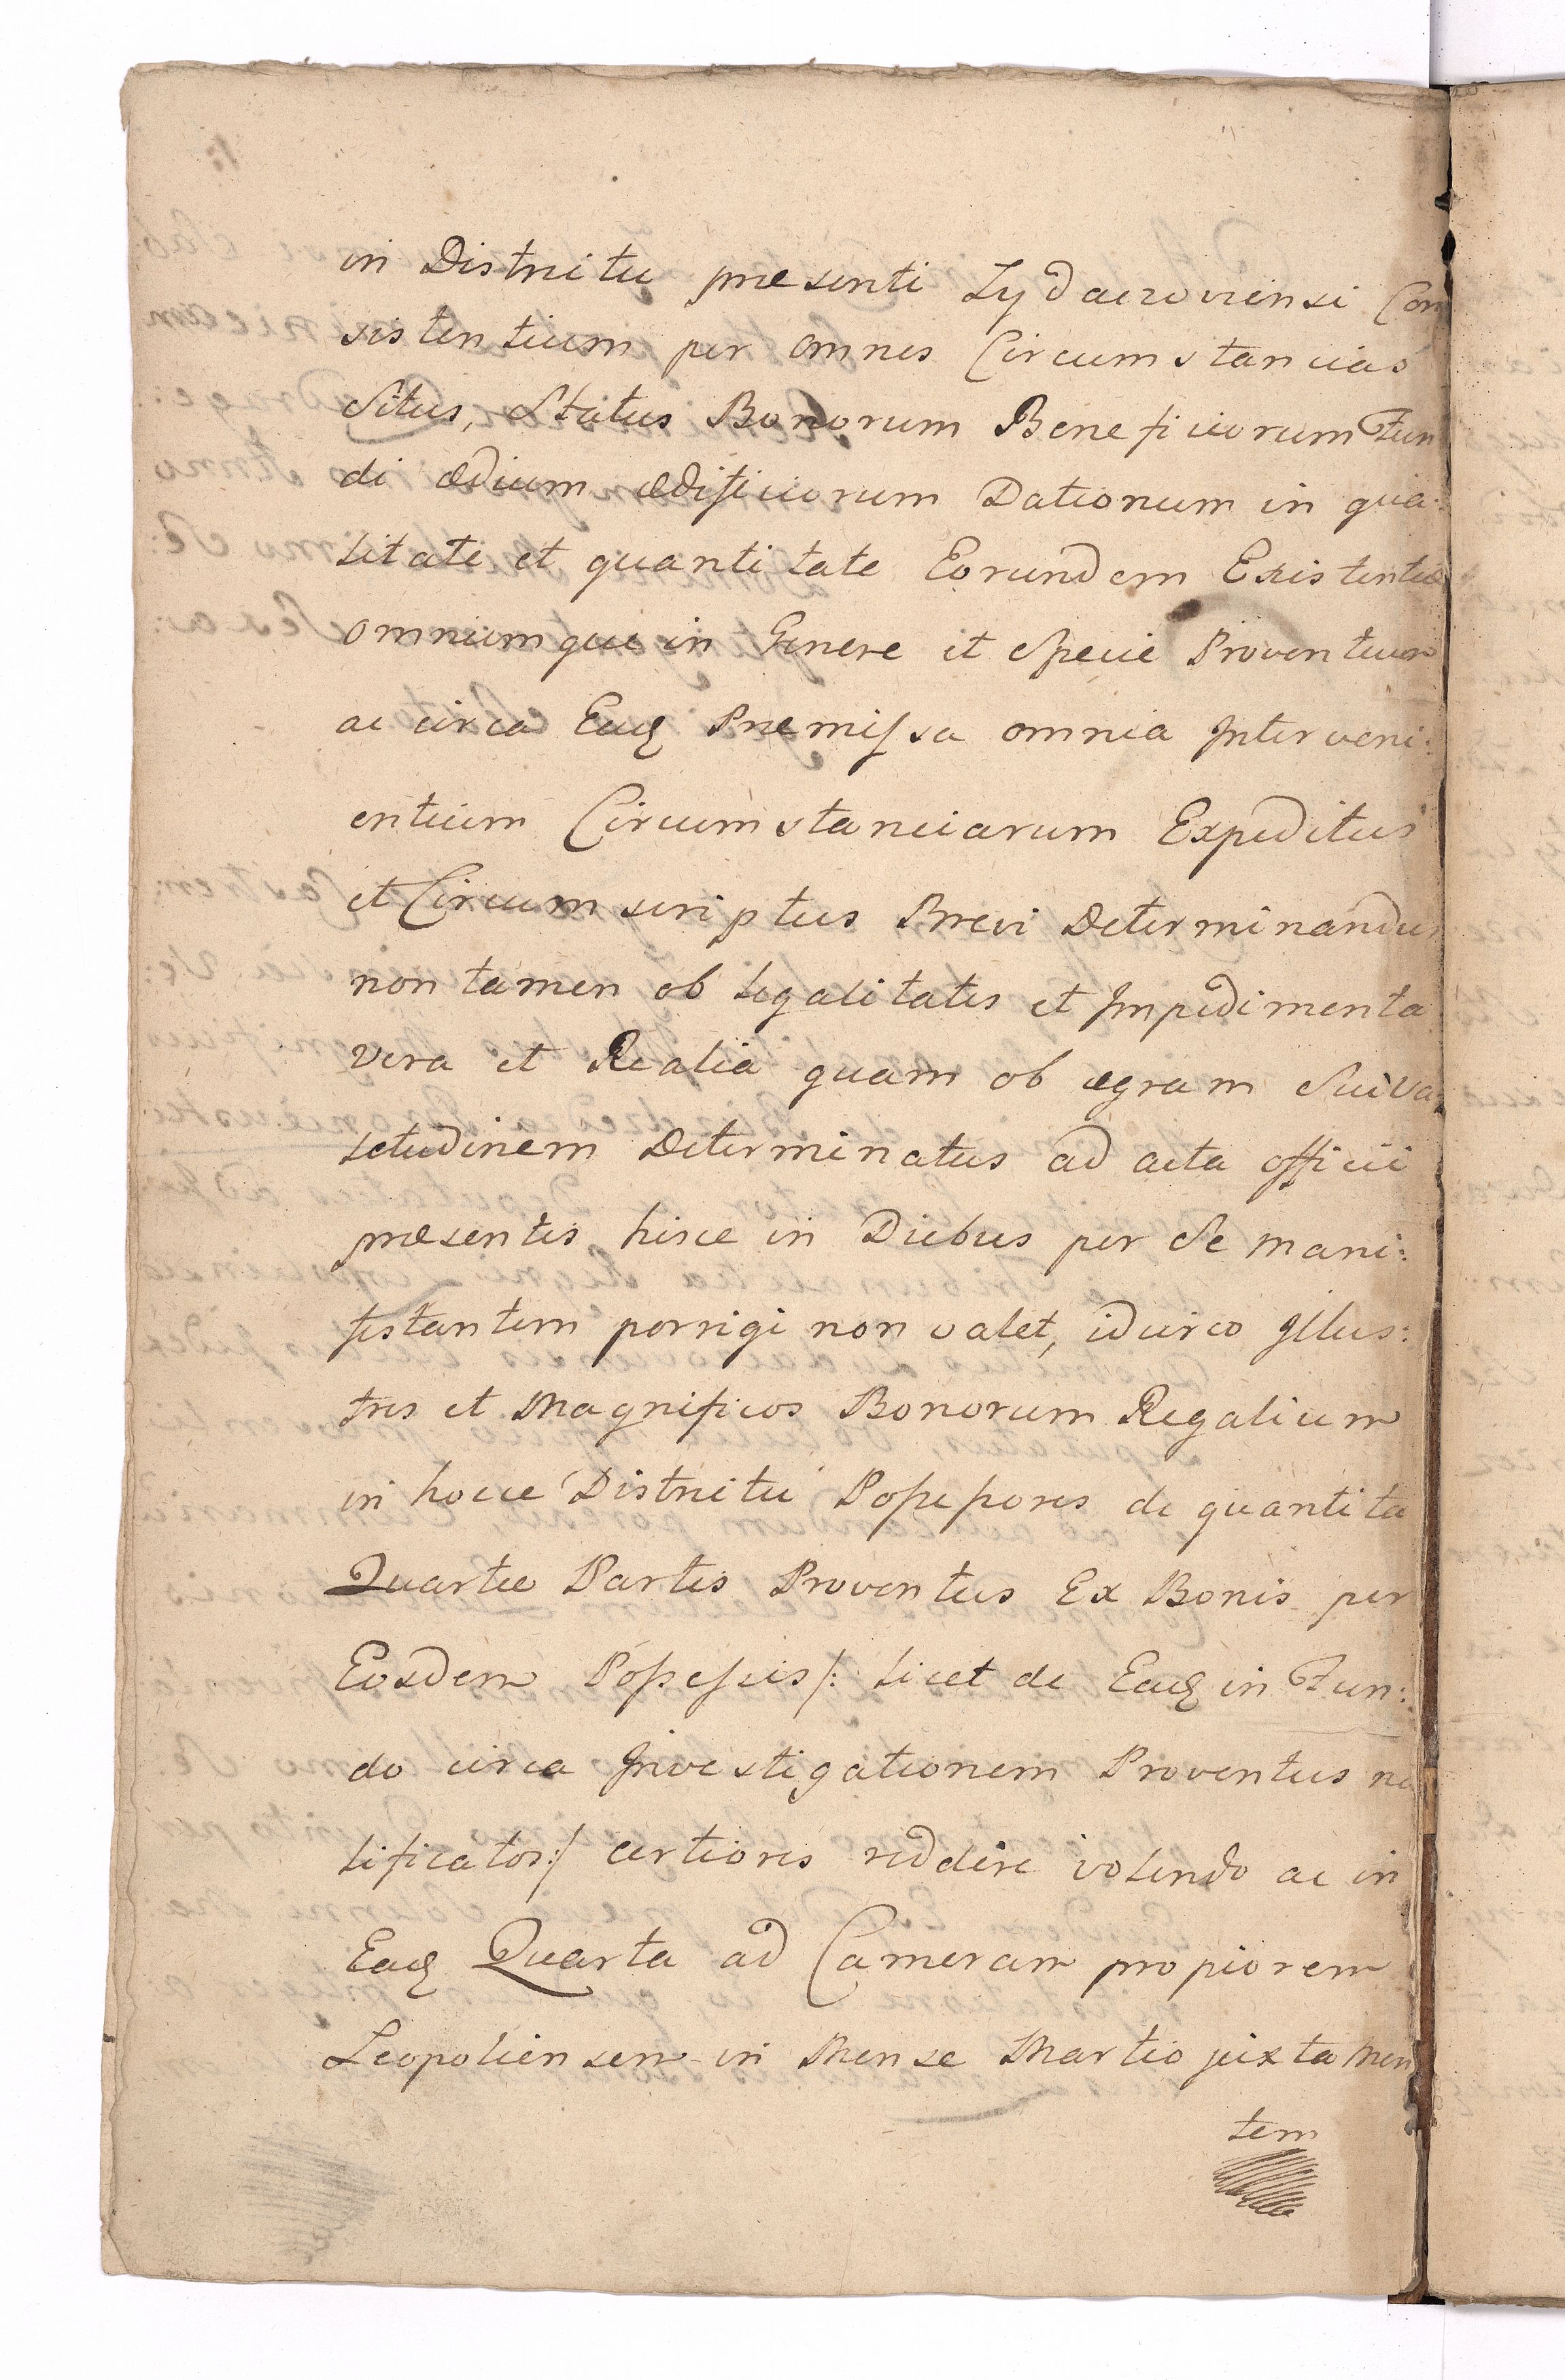 in Districtu præsenti Zydaczoviensi Con
sistentium per omnes Circumstancias
Situs, Status Bonorum Beneficiorum Fun
di ædium ædificiorum Dationum in qua:
litate et quantitate Eorundem Existentiæ
omniumque in Genere et Specie Proventuum
ac circa Eaq Præmissa omnia Interveni:
entium Circumstanciarum Expeditus
et Circumscriptus Brevi Determinandus
non tamen ob legalitates et Impedimenta
vera et Realia quam ob ægram Sui Va:
letudinem Determinatus ad acta officii
præsentis hisce in Diebus per Se mani:
festantem porrigi non valet, idcirco Illus:
tres et Magnificos Bonorum Regalium
in hocce Districtu Possessores de quantita
Quartæ Partis Proventus Ex Bonis per
Eosdem Possessis /: licet de Eaq in Fun:
do circa Investigationem Proventus no
tificatos :/ certiores reddere volendo ac in
Eaq Quarta ad Cameram propiorem
Leopoliensem in Mense Martio juxta Men
tem